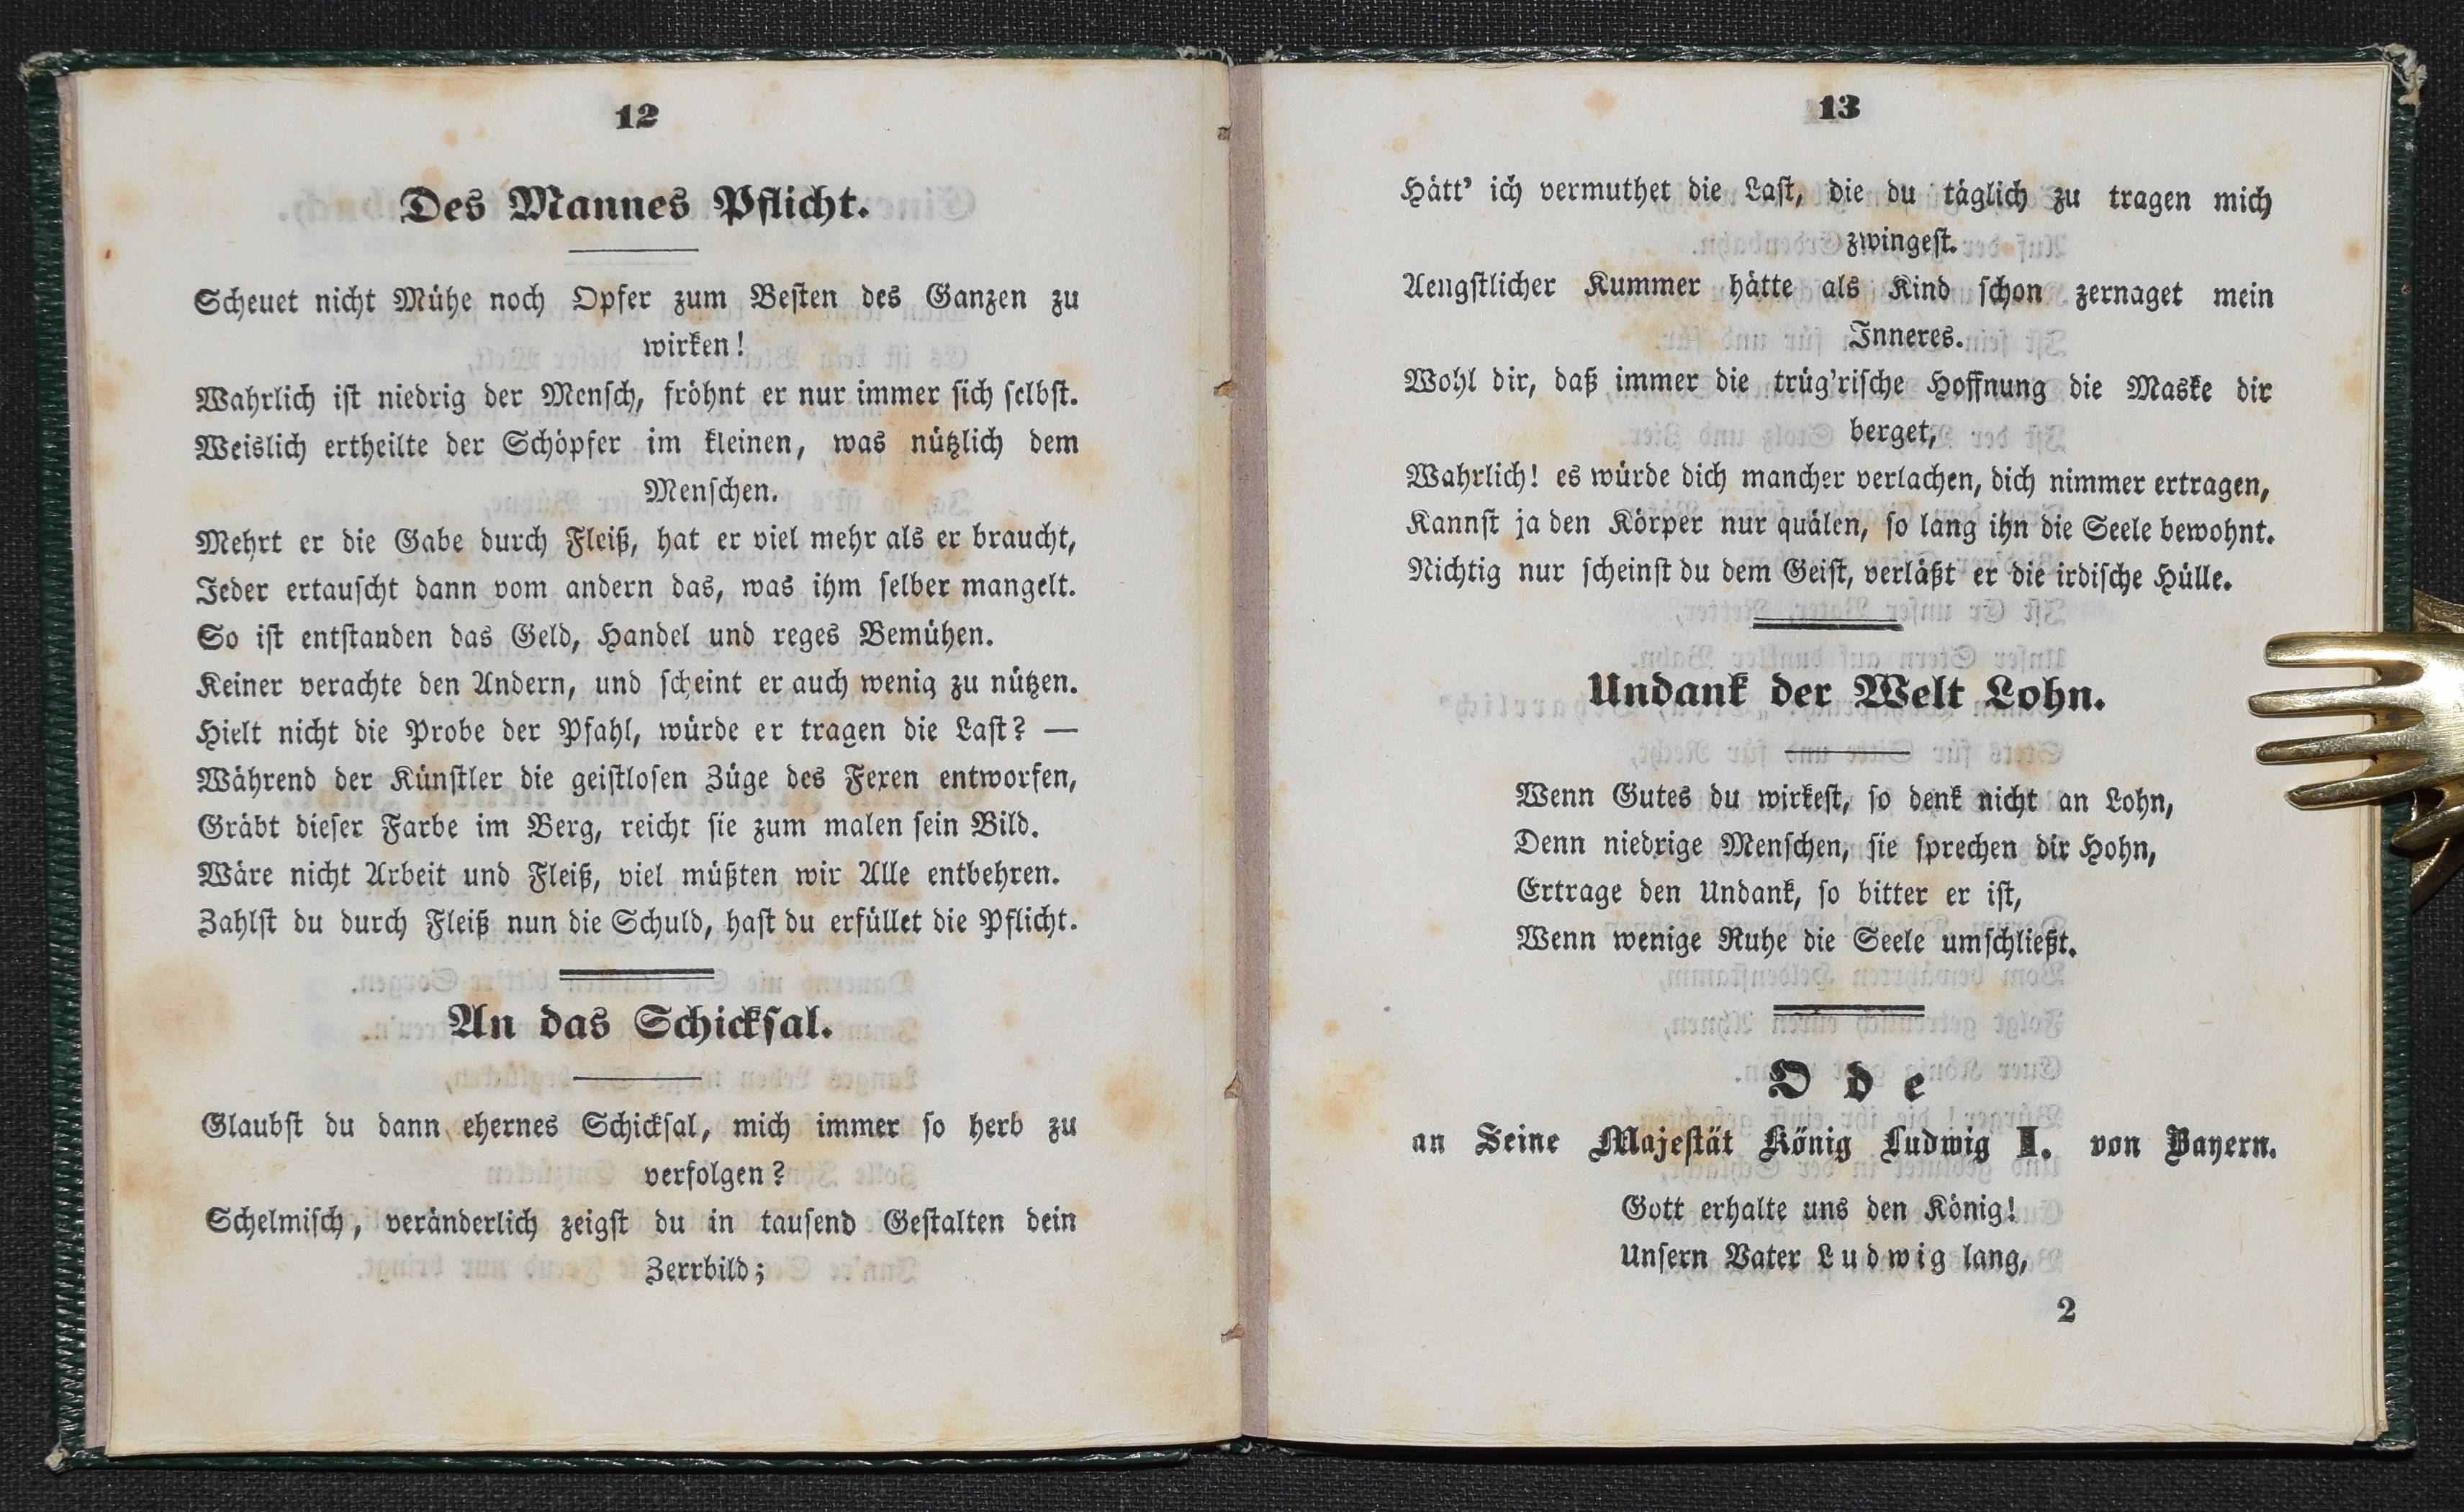 12
Des Mannes Pflicht.
Scheuet nicht Mühe noch Opfer zum Besten des Ganzen zu
wirken!
Wahrlich ist niedrig der Mensch, fröhnt er nur immer sich selbst.
Weislich ertheilte der Schöpfer im kleinen, was nützlich dem
Menschen.
Mehrt er die Gabe durch Fleiß, hat er viel mehr als er braucht,
Jeder ertauscht dann vom andern das, was ihm selber mangelt.
So ist entstanden das Geld, Handel und reges Bemühen.
Keiner verachte den Andern, und scheint er auch wenig zu nützen.
Hielt nicht die Probe der Pfahl, würde er tragen die Last? —
Während der Künstler die geistlosen Züge des Fexen entworfen,
Gräbt dieser Farbe im Berg, reicht sie zum malen sein Bild.
Wäre nicht Arbeit und Fleiß, viel müßten wir Alle entbehren.
Zahlst du durch Fleiß nun die Schuld, hast du erfüllet die Pflicht.
An das Schicksal.
Glaubst du dann ehernes Schicksal, mich immer so herb zu
verfolgen?
Schelmisch, veränderlich zeigst du in tausend Gestalten dein
Zerrbild;
13
Hätt' ich vermuthet die Last, die du täglich zu tragen mich
zwingest.
Aengstlicher Kummer hätte als Kind schon zernaget mein
Inneres.
Wohl dir, daß immer die trüg'rische Hoffnung die Maske dir
berget,
Wahrlich! es würde dich mancher verlachen, dich nimmer ertragen,
Kannst ja den Körper nur quälen, so lang ihn die Seele bewohnt.
Nichtig nur scheinst du dem Geist, verläßt er die irdische Hülle.
Undank der Welt Lohn.
Wenn Gutes du wirkest, so denk nicht an Lohn,
Denn niedrige Menschen, sie sprechen dir Hohn,
Ertrage den Undank, so bitter er ist,
Wenn wenige Ruhe die Seele umschließt.
Ode
an Seine Majestät König Ludwig I. von Bayern.
Gott erhalte uns den König!
Unsern Vater Ludwig lang,
2